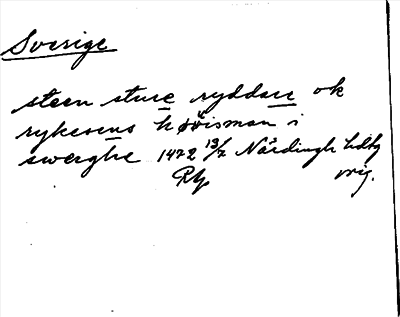 Sverige
steen sture ryddare ok
rykesens höwisman i
swerghe 1472 13/7 Nårdingh hdbg
RAp orig.